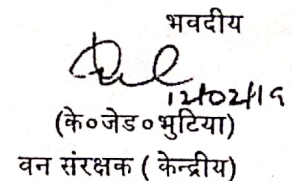 भवदीय
12/02/19
(के०जेड०भुटिया)
वन संरक्षक ( केन्द्रीय)